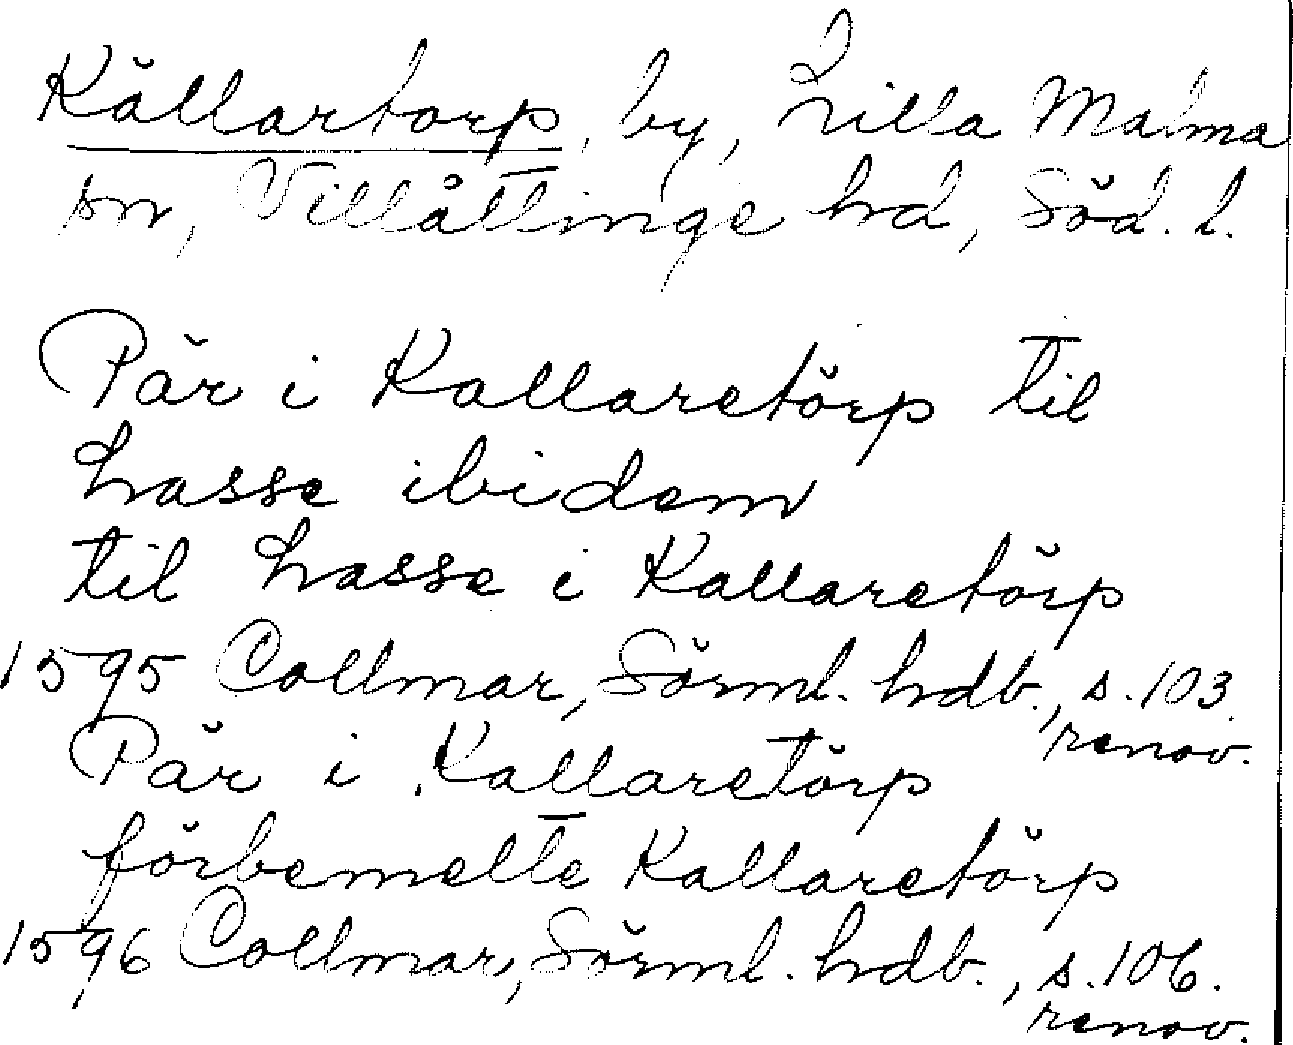 Källartorp, by, Lilla Malma
sn, Villåttinge hd, Söd. l.
Pär i Kallaretörp til
Lasse ibidem
til Lasse i Kallaretörp
1595 Collmar, Sörml. hdb., s. 103.
renov.
Pär i Kallaretörp
förbemelte Kallaretörp
1596 Collmar, Sörml. hdb., s. 106.
renov.